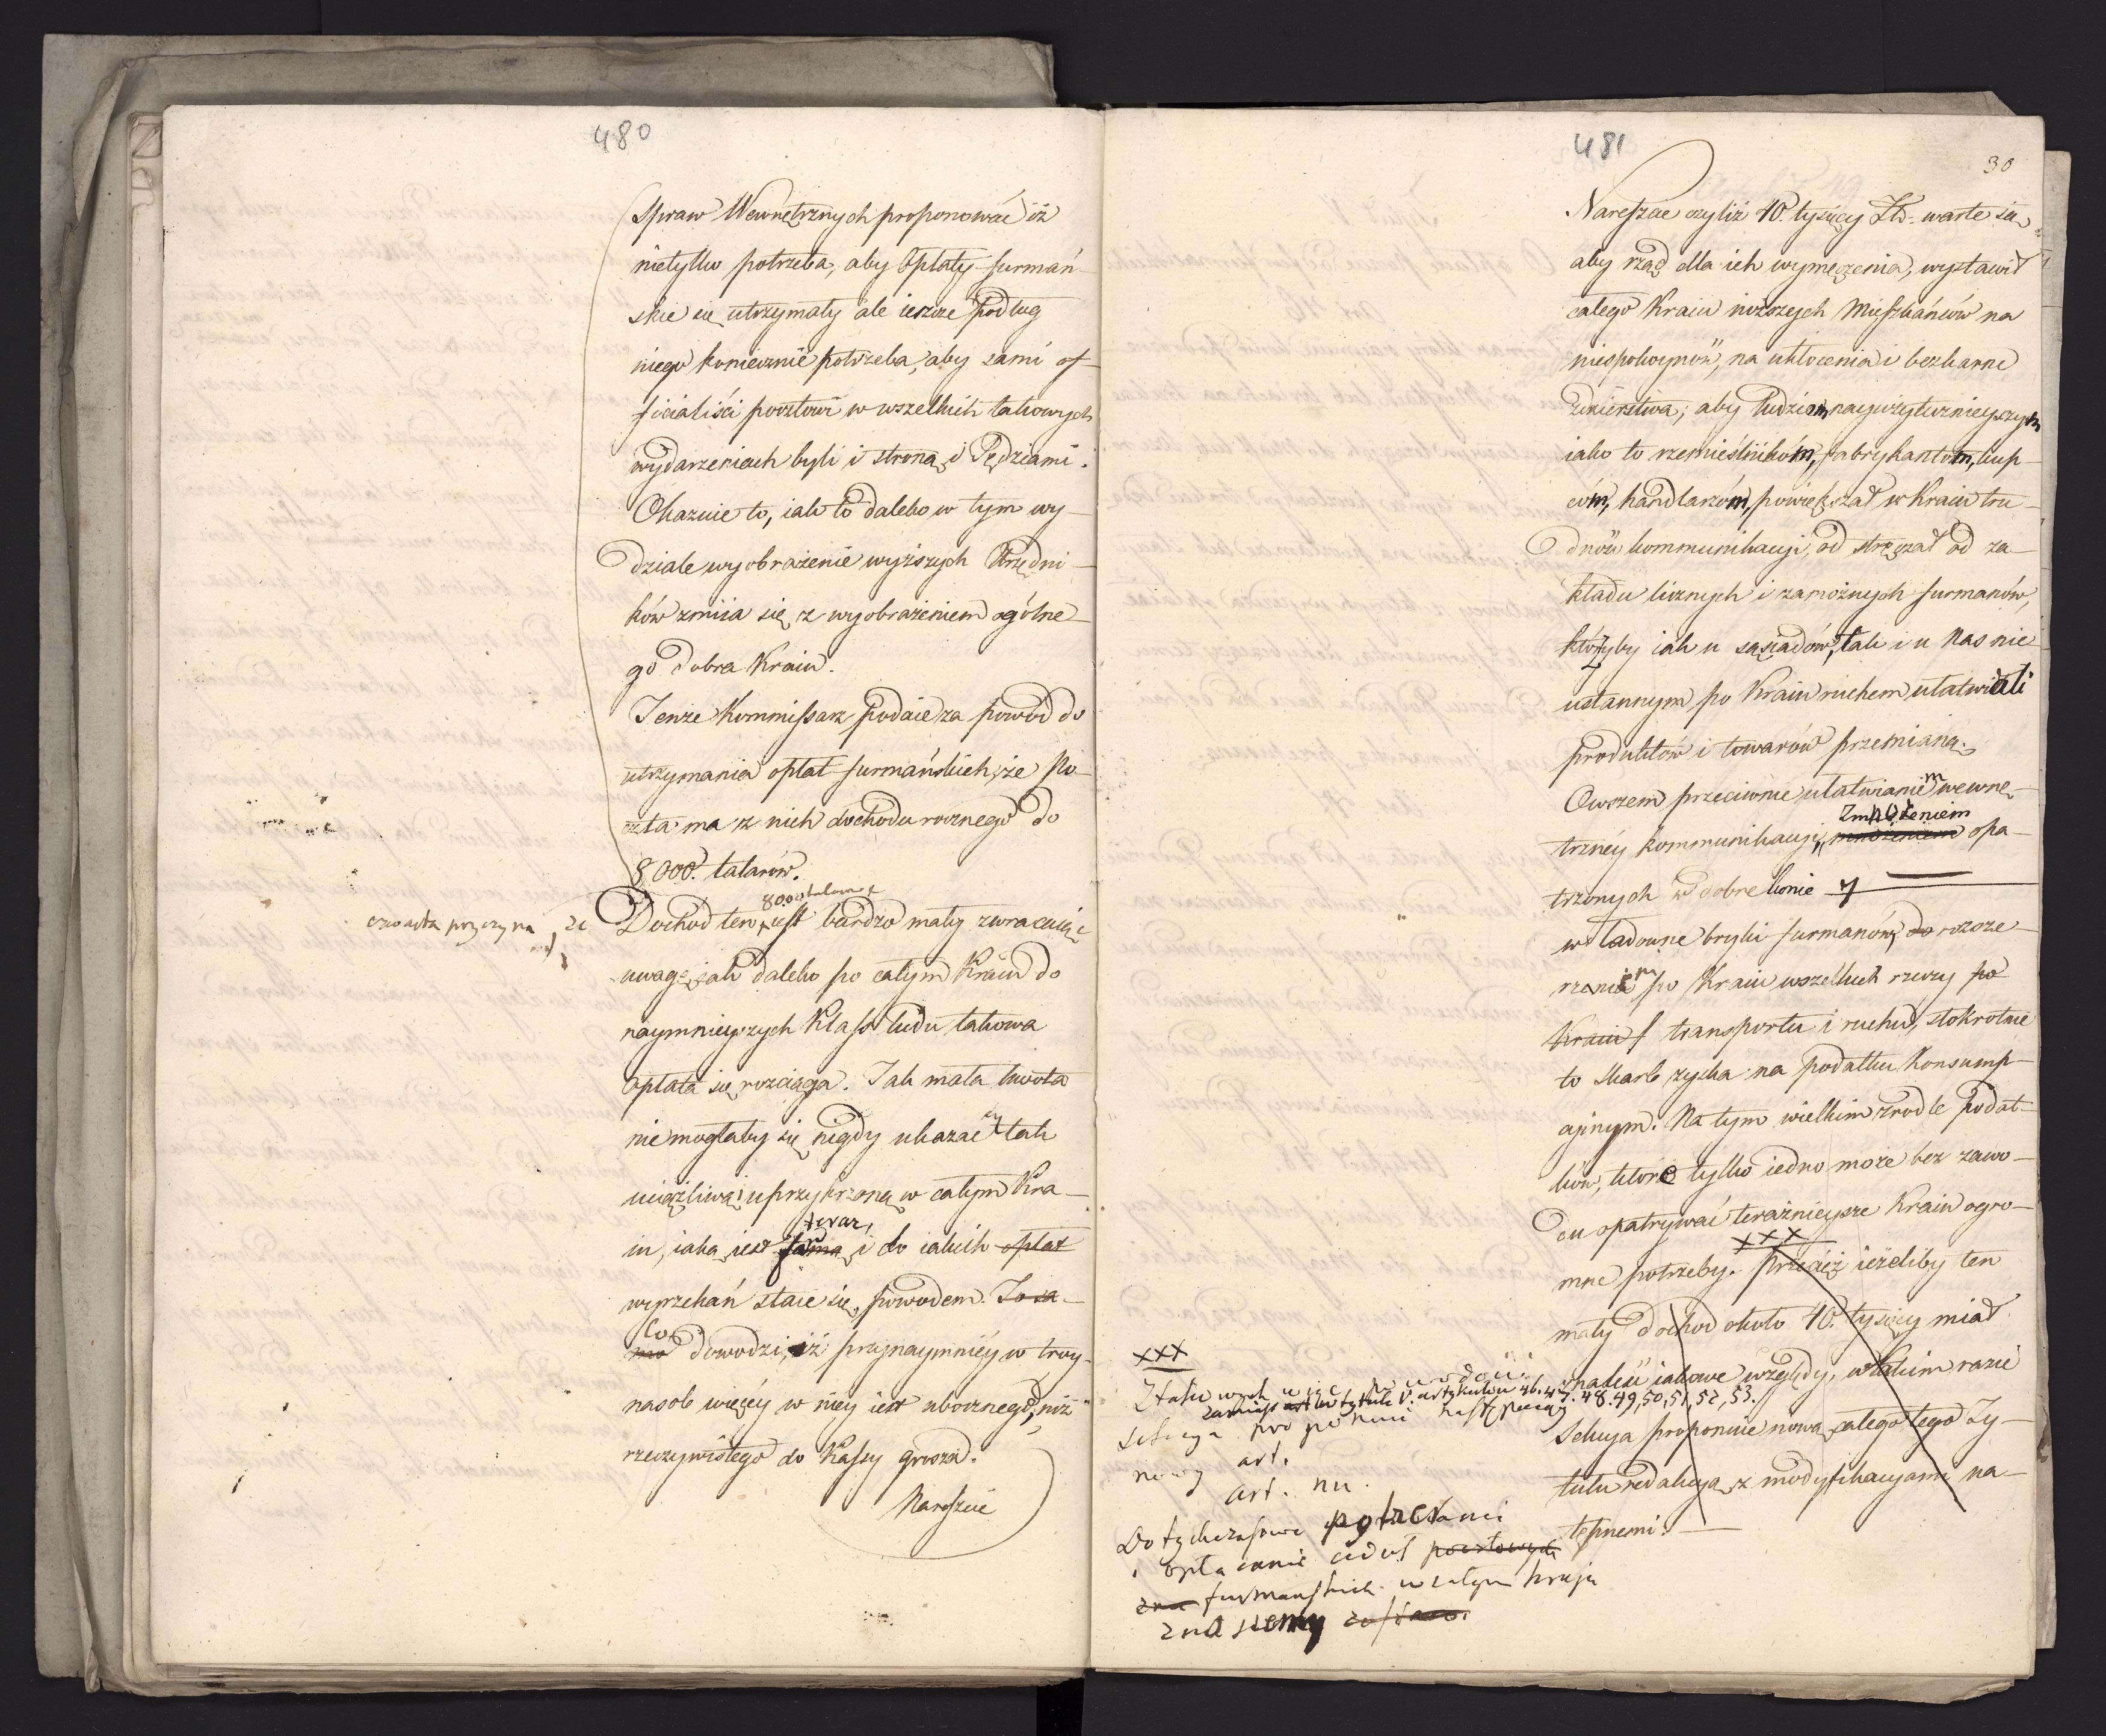 480
Spraw Wewnętrznych proponować iż
nietylko potrzeba, aby Opłaty furmań
skie się utrzymały ale ieszcze podług
niego koniecznie potrzeba, aby sami of-
ficialiści pocztowi w wszelkich takowych
wydarzeniach byli i stroną i Sędziami.
Okazuie to, iak to daleko w tym wy-
dziale wyobrażenie wyższych Urzędni-
ków zmiia się z wyobrażeniem ogólne-
go dobra Kraiu.
Tenże Kommissarz podaie za powód do
utrzymania opłat furmańskich, że Po-
czta ma z nich dochodu rocznego do
8,000. talarów.
8000 talarów
czwarta przyczyna, że
Dochod ten iest bardzo mały zwracaiąc
uwagę, iak daleko po całym Kraiu do
naymnieyszych Klass ludu takowa
opłata się rozciąga. Tak mała kwota
nie mogłaby się nigdy ukazać tak
uciążliwą i uprzykrzoną w całym Kra-
teraz,
iu, iaka iest i do iakich opłat
wyrzekań staie się powodem. To sa-
Co
mo dowodzi, iż przynaymniéy w troy-
nasob więcéy w niéy iest ubocznego, niż
rzeczywistego do Kassy grosza.
Nareszcie
481
30
Nareszcie czyliż 40. tysięcy Złt. warte są,
aby rząd dla ich wymęczenia, wystawił
całego Kraiu niższych Mieszkańców na
niespokoyność, na ukłócenia i bezkarne
zdzierstwa; aby ludziom nayużytecznieyszym
iako to rzemieślnikóm, fabrykantom, kup-
cóm, handlarzóm, powiększał w Kraiu tru-
dność kommunikacyi, od stręczał od za-
kładu licznych i zamożnych furmanów,
którzyby iak u sąsiadów, tak i u Nas nie
ustannym po Kraiu ruchem ułatwiali
produktów i towarów przemianę.
Owszem przeciwnie ułatwianiem wewnę-
zmnożeniem
trznéy kommunikacyi, mnożeniem opa-
trzonych w dobre konie
w ładowne bryki furmanów, do rozsze-
rzaniem po Kraiu wszelkich rzeczy po
Kraiu transportu i ruchu, stokrotnie
to skarb zyska na podatku Konsump-
cyinym. Na tym wielkim zrodle podat-
ków, które tylko iedno może bez zawo-
du opatrywać teraźnieysze Kraiu ogro-
xxx
mne potrzeby. Przecięż ieżeliby ten
mały dochod około 40. tysięcy miał
znaleść iakowe względy, w takim razie
Sekcya proponuie nową całego tego Ty-
tułu redakcyą z modyfikacyami na-
stępnemi.
xxx
Z takowych więc powodów
zamiast w tytule V. artykułów 46. 47. 48. 49, 50, 51, 52, 53.
sekcya proponuie następuiący
nowy art.
art. nu.
Dotychczasowe potrzebami
i opłacanie cedul pocztowych
furmańskich w całym kraju
znosiemy